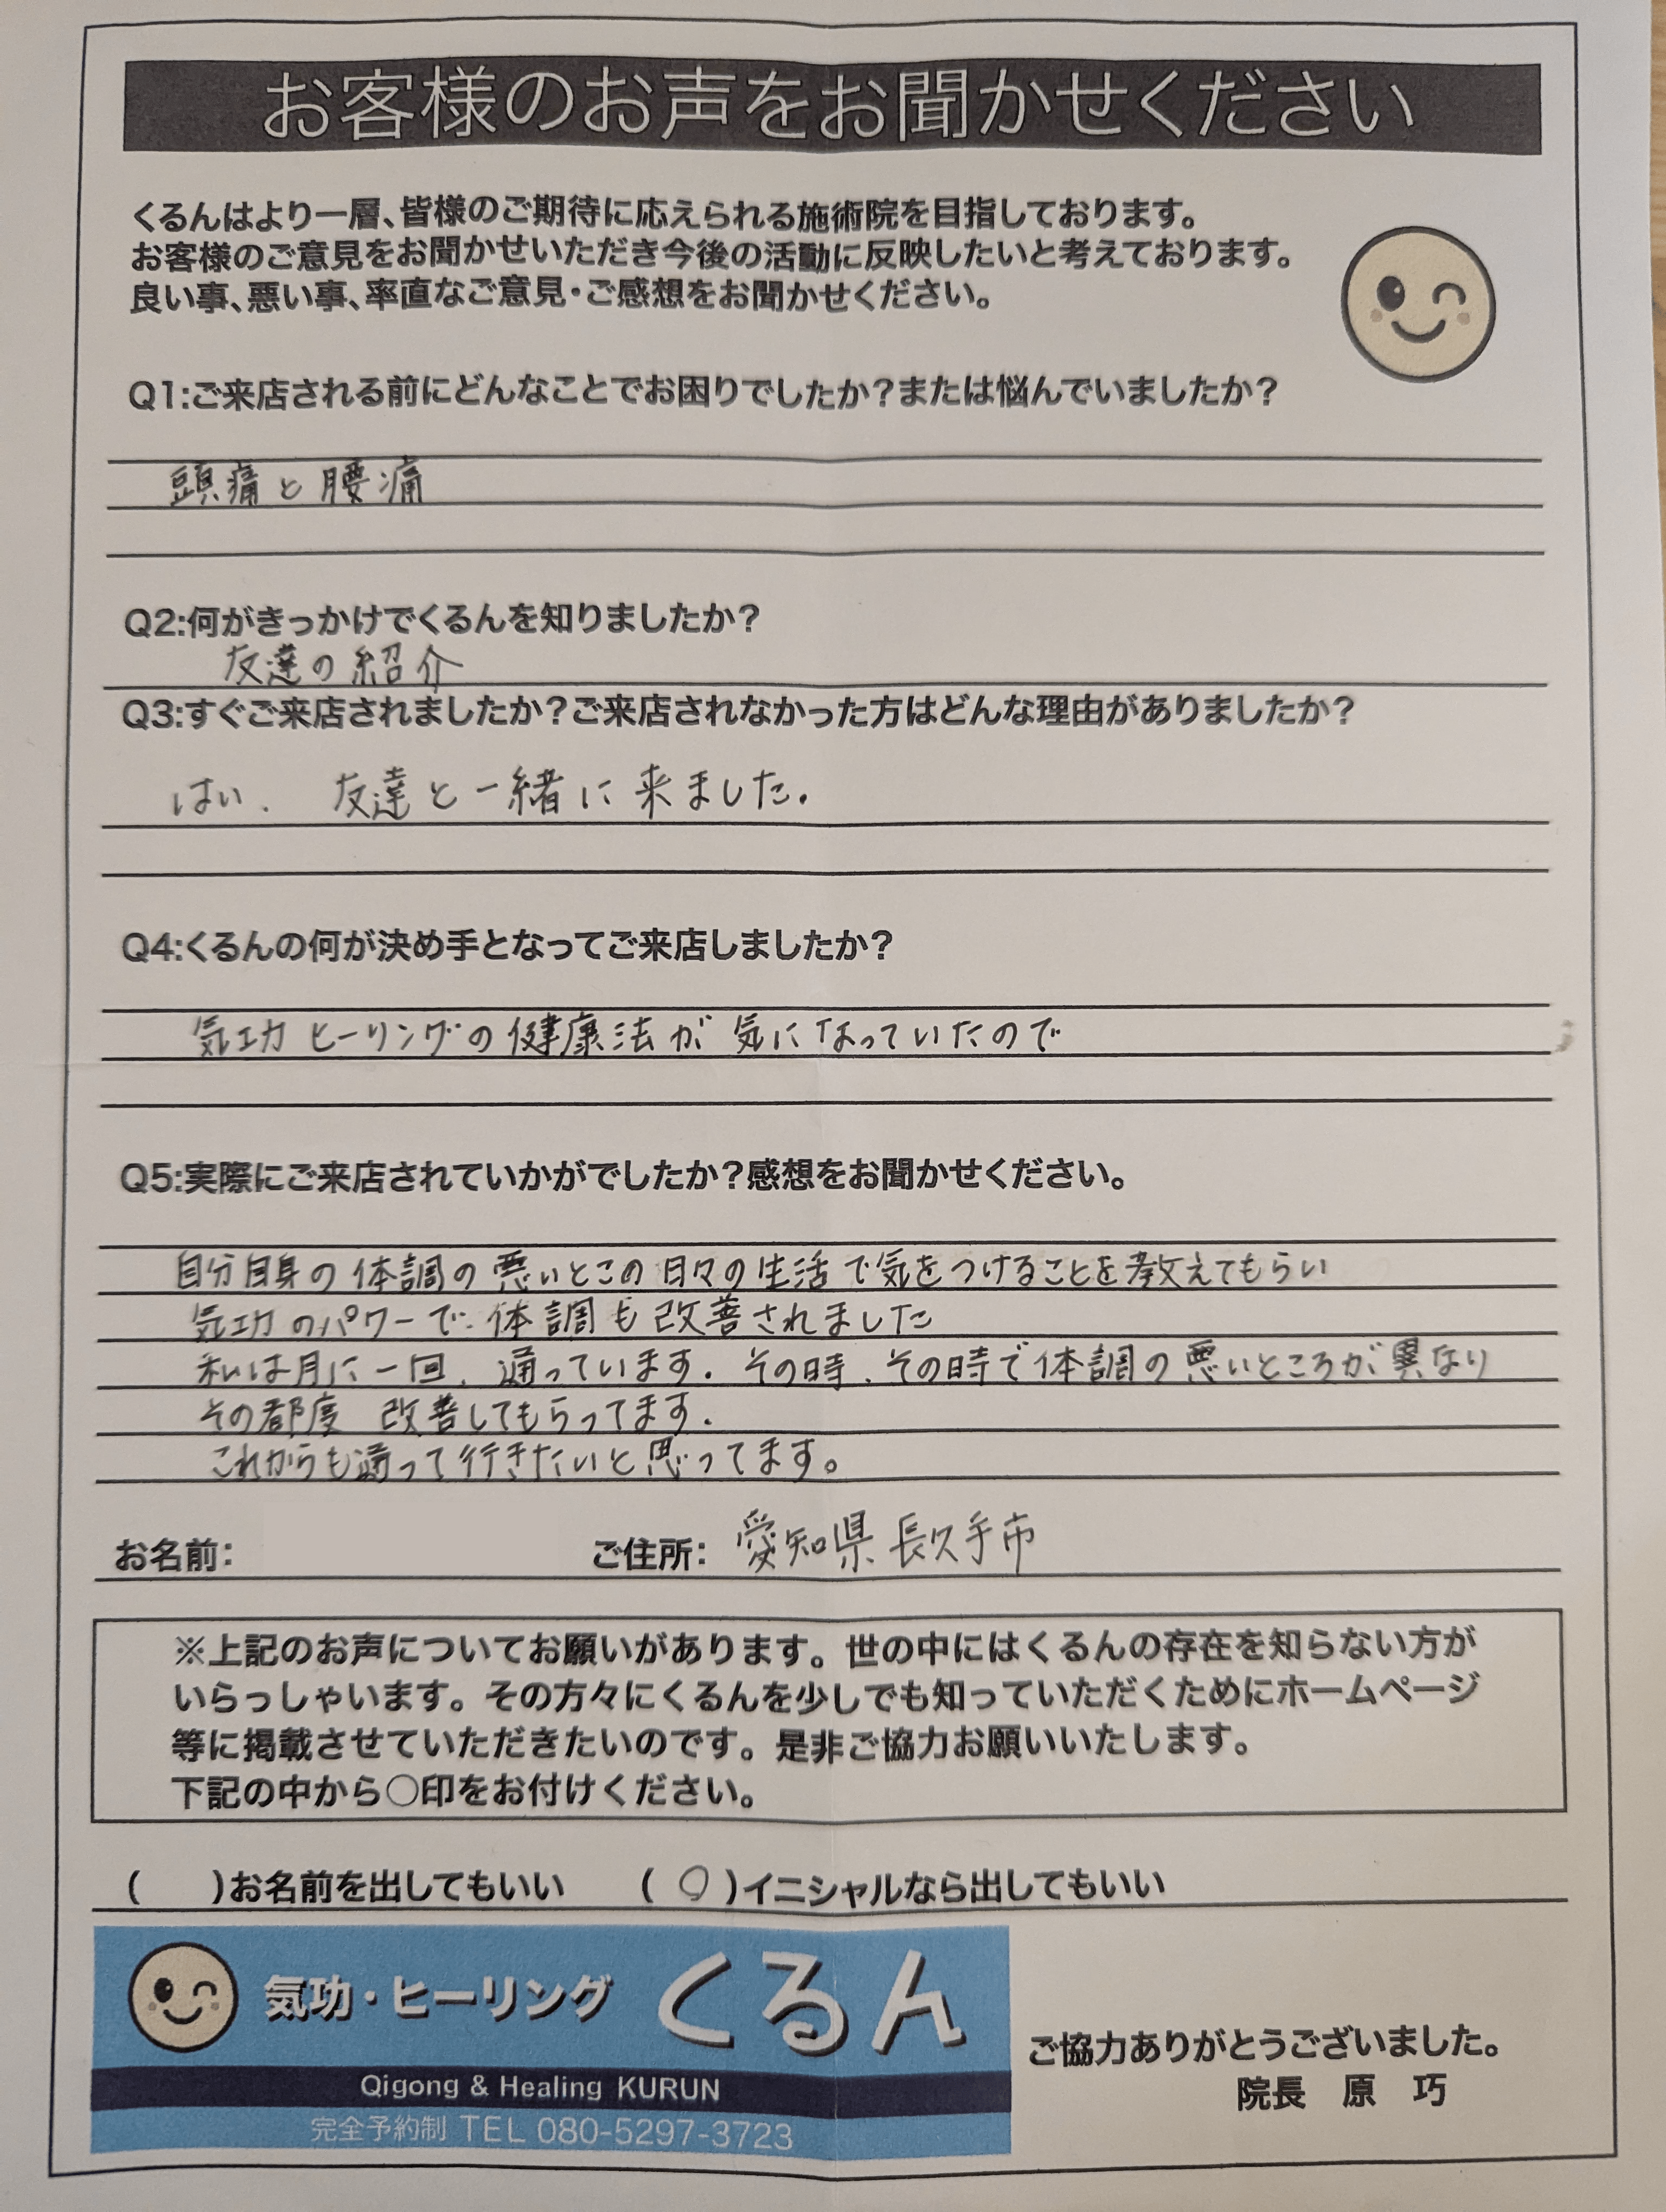 お客様のお声をお聞かせください
くるんはより一層、皆様のご期待に応えられる施術院を目指しております。
お客様のご意見をお聞かせいただき今後の活動に反映したいと考えております。
良い事、悪い事、率直なご意見・ご感想をお聞かせください。
Q1:ご来店される前にどんなことでお困りでしたか?または悩んでいましたか?
頭痛と腰痛
Q2:何がきっかけでくるんを知りましたか?
友達の紹介
Q3:すぐご来店されましたか?ご来店されなかった方はどんな理由がありましたか?
はい. 友達と一緒に来ました.
Q4:くるんの何が決め手となってご来店しましたか?
気功ヒーリングの健康法が気になっていたので
Q5:実際にご来店されていかがでしたか?感想をお聞かせください。
自分自身の体調の悪いとこの日々の生活で気をつけることを教えてもらい
気功のパワーで体調も改善されました
私は月に一回、通っています. その時、その時で体調の悪いところが異なり
その都度 改善してもらってます.
これからも通って行きたいと思ってます。
お名前: ご住所: 愛知県長久手市
※上記のお声についてお願いがあります。世の中にはくるんの存在を知らない方が
いらっしゃいます。その方々にくるんを少しでも知っていただくためにホームページ
等に掲載させていただきたいのです。是非ご協力お願いいたします。
下記の中から○印をお付けください。
( )お名前を出してもいい (○)イニシャルなら出してもいい
気功・ヒーリング くるん
Qigong & Healing KURUN
完全予約制 TEL 080-5297-3723
ご協力ありがとうございました。
院長 原 巧